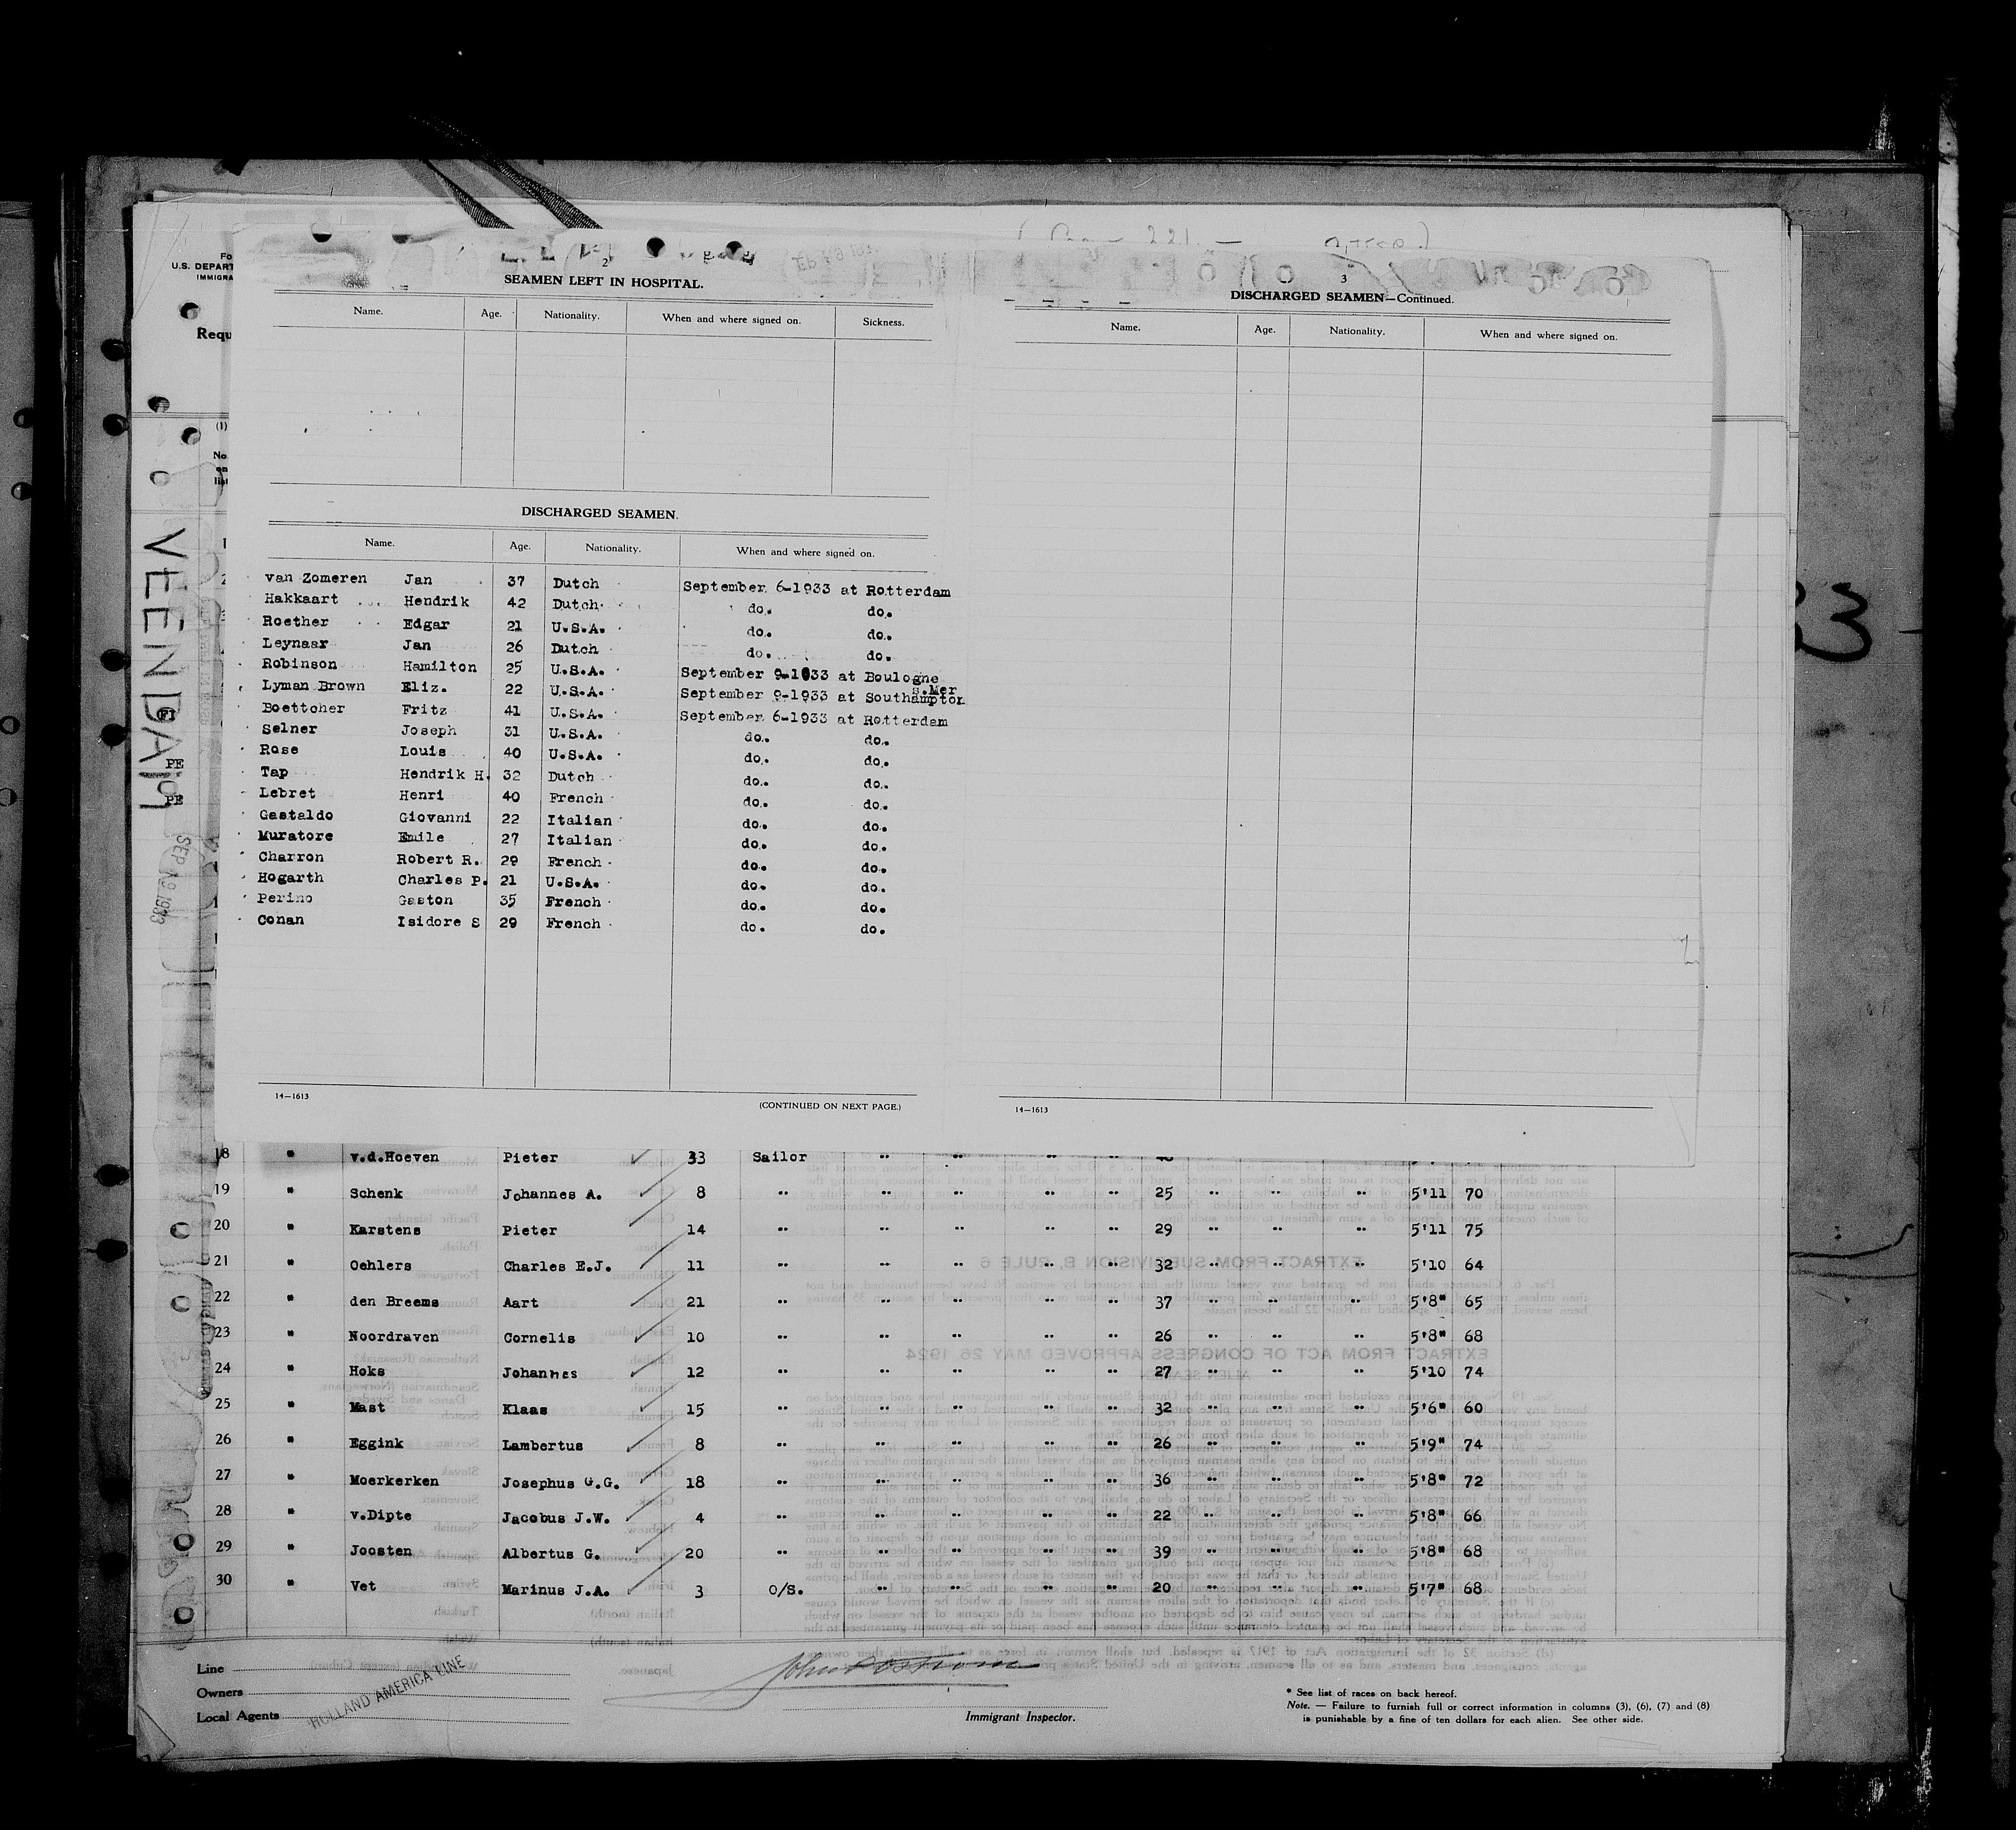 2
SEAMEN LEFT IN HOSPITAL.
Name. Age. Nationality. When and where signed on. Sickness.
DISCHARGED SEAMEN.
Name. Age. Nationality. When and where signed on.
van Zomeren Jan 37 Dutch September 6-1933 at Rotterdam
Hakkaart Hendrik 42 Dutch do. do.
Roether Edgar 21 U.S.A. do. do.
Leynaar Jan 26 Dutch do. do.
Robinson Hamilton 25 U.S.A. September 9-1933 at Boulogne s.Mer
Lyman Brown Eliz. 22 U.S.A. September 9-1933 at Southampton
Boettcher Fritz 41 U.S.A. September 6-1933 at Rotterdam
Selner Joseph 31 U.S.A. do. do.
Rose Louis 40 U.S.A. do. do.
Tap Hendrik H. 32 Dutch do. do.
Lebret Henri 40 French do. do.
Gastaldo Giovanni 22 Italian do. do.
Muratore Emile 27 Italian do. do.
Charron Robert R. 29 French do. do.
Hogarth Charles P. 21 U.S.A. do. do.
Perino Gaston 35 French do. do.
Conan Isidore S 29 French do. do.
14—1613
(CONTINUED ON NEXT PAGE.)
3
DISCHARGED SEAMEN—Continued.
Name. Age. Nationality. When and where signed on.
14—1613
U.S. DEPART
IMMIGRA
Requ
(1)
No.
on
list
VEENDAM
PE
PE
SEP 19 1933
18 " v.d.Hoeven Pieter 33 Sailor " " " "
19 " Schenk Johannes A. 8 " " " " " 25 " " " 5'11 70
20 " Karstens Pieter 14 " " " " " 29 " " " 5'11 75
21 " Oehlers Charles E.J. 11 " " " " " 32 " " " 5'10 64
22 " den Breems Aart 21 " " " " " 37 " " " 5'8" 65
23 " Noordraven Cornelis 10 " " " " " 26 " " " 5'8" 68
24 " Hoks Johannes 12 " " " " " 27 " " " 5'10 74
25 " Mast Klaas 15 " " " " " 32 " " " 5'6" 60
26 " Eggink Lambertus 8 " " " " " 26 " " " 5'9" 74
27 " Moerkerken Josephus G.G. 18 " " " " " 36 " " " 5'8" 72
28 " v.Dipte Jacobus J.W. 4 " " " " " 22 " " " 5'8" 66
29 " Joosten Albertus G. 20 " " " " " 39 " " " 5'8" 68
30 " Vet Marinus J.A. 3 O/S. " " " " 20 " " " 5'7" 68
Line
Owners
Local Agents
HOLLAND AMERICA LINE
Immigrant Inspector.
* See list of races on back hereof.
Note. — Failure to furnish full or correct information in columns (3), (6), (7) and (8)
is punishable by a fine of ten dollars for each alien. See other side.